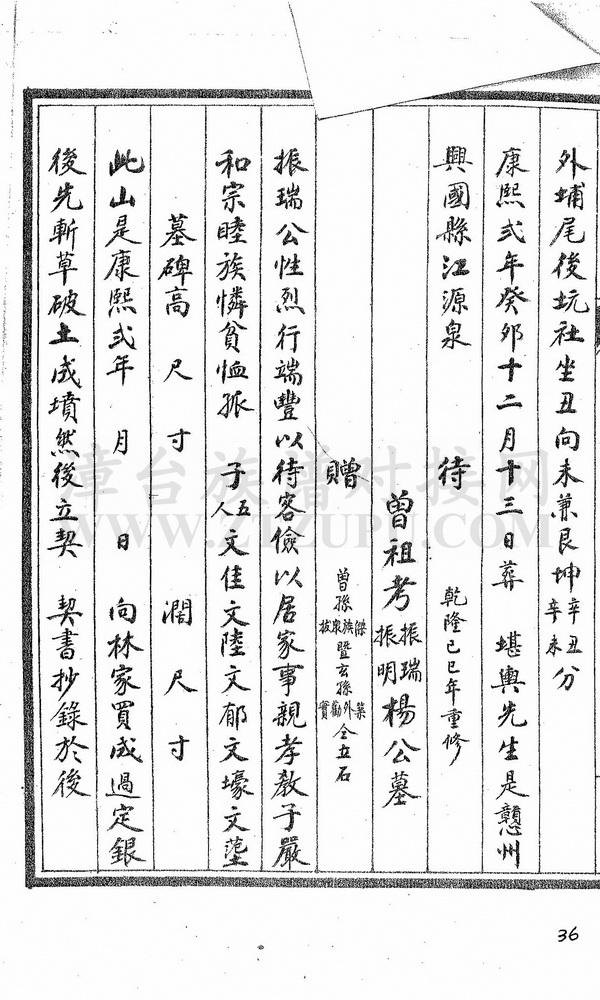 外埔尾後坑社坐丑向未兼艮坤辛丑辛未分
康熙弍年癸卯十二月十三日葬 堪輿先生是贛州
興國縣江源泉 待 乾隆己巳年重修
曾祖考振瑞振明楊公墓
贈 曾孫傑族泉拔暨玄孫築外勸實仝立石
振瑞公性烈行端豐以待客儉以居家事親孝教子嚴
和宗睦族憐貧恤孤 子五人文佳文陸文郁文壕文
墓碑高 尺 寸 濶 尺 寸
此山是康熙弍年 月 日 向林家買成過定銀
後先斬草破土成墳然後立契 契書抄錄於後
36
漳台族谱对接网
WWW.ZTZUPU.COM